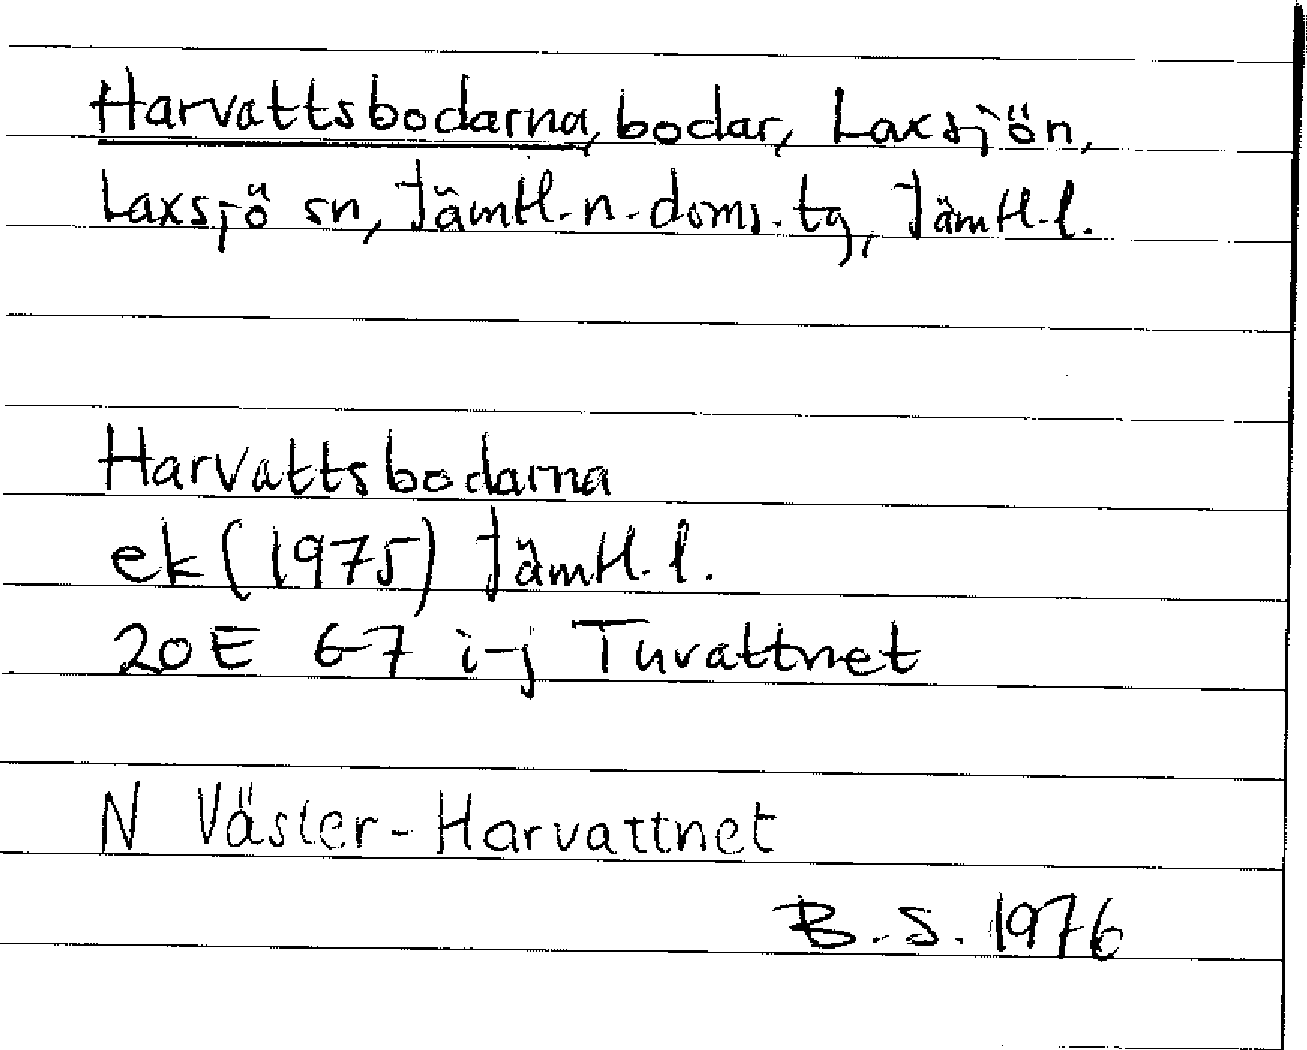 Harvattsbodarna, bodar, Laxsjön,
Laxsjö sn, Jämtl. n. doms. tg, Jämtl. l.
Harvattsbodarna
ek (1975) Jämtl. l.
20E 6-7 i-j Tuvattnet
N Väster-Harvattnet
B. S. 1976